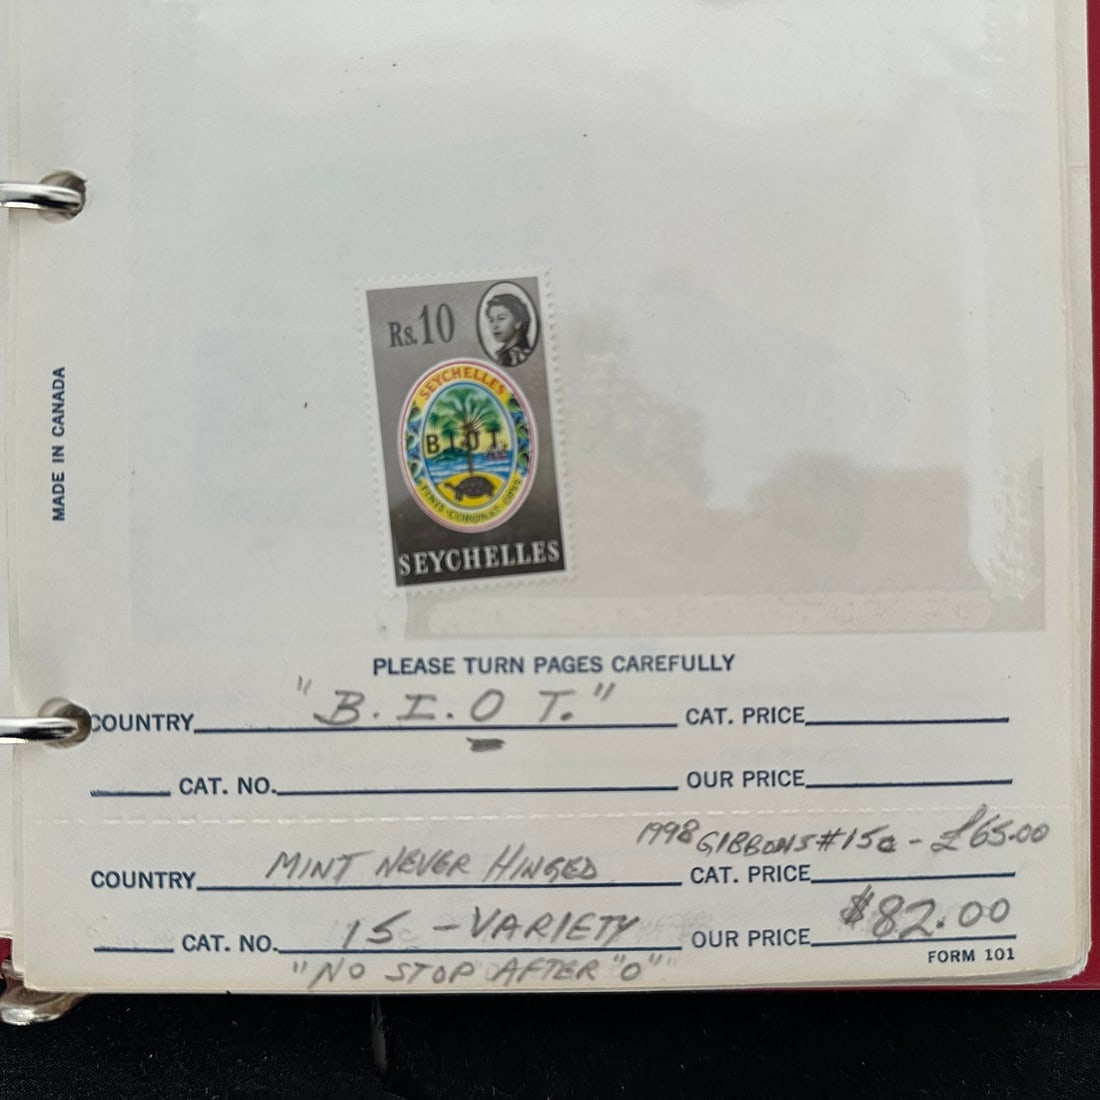 Rs.10
SEYCHELLES
B.I.O T.
SEYCHELLES
MADE IN CANADA
PLEASE TURN PAGES CAREFULLY
COUNTRY "B. I. O T." CAT. PRICE
CAT. NO. OUR PRICE
1998 GIBBONS #15a - £65.00
COUNTRY MINT NEVER HINGED CAT. PRICE
CAT. NO. 15 - VARIETY OUR PRICE $82.00
"NO STOP AFTER "O""
FORM 101